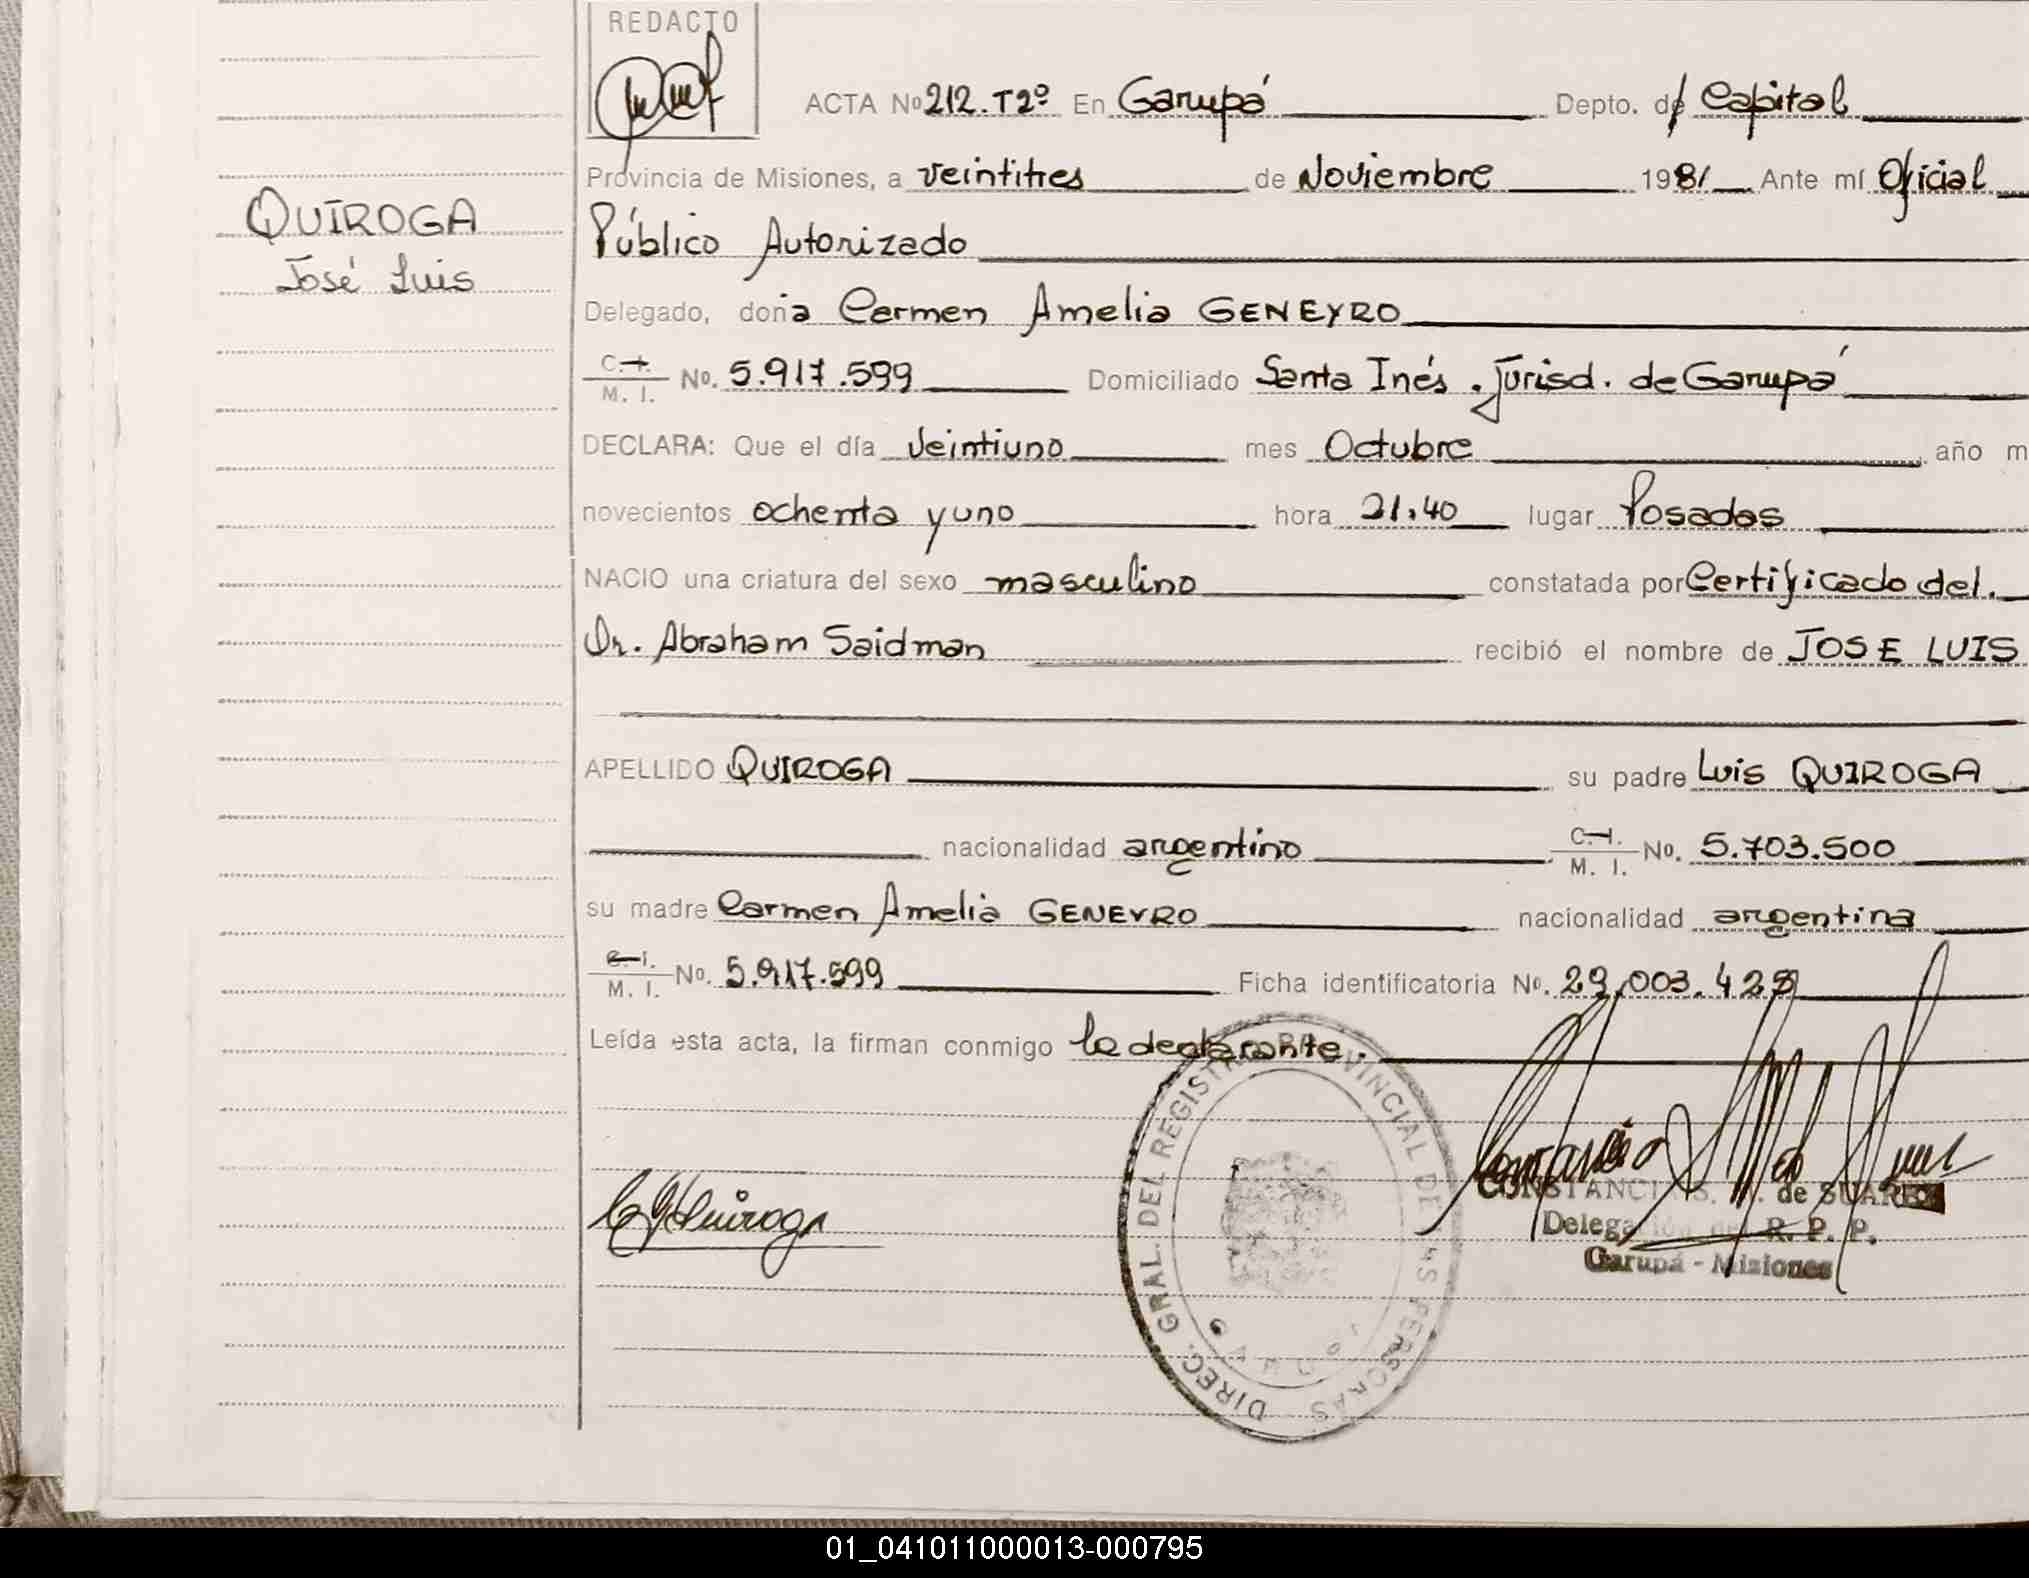 REDACTO
ACTA Nº 212. T2º En Garupá Depto. de Capital
Provincia de Misiones, a veintitres de Noviembre 1981 Ante mí Oficial
QUIROGA
Público Autorizado
José Luis
Delegado, doña Carmen Amelia GENEYRO
C. I.
M. I. No. 5.917.599 Domiciliado Santa Inés. Jurisd. de Garupá
DECLARA: Que el día Veintiuno mes Octubre año m
novecientos ochenta y uno hora 21,40 lugar Posadas
NACIO una criatura del sexo masculino constatada por Certificado del.
Dr. Abraham Saidman recibió el nombre de JOSE LUIS
APELLIDO QUIROGA su padre Luis QUIROGA
nacionalidad argentino C. I.
M. I. No. 5.703.500
su madre Carmen Amelia GENEYRO nacionalidad argentina
C. I.
M. I. No. 5.917.599 Ficha identificatoria Nº. 29.003.429
Leída esta acta, la firman conmigo la declarante.
DIREC. GRAL. DEL REGISTRO PROVINCIAL DE LAS PERSONAS
Quiroga
CONSTANCIA S. de SUAREZ
Delegación del R. P. P.
Garupá - Misiones
01_041011000013-000795